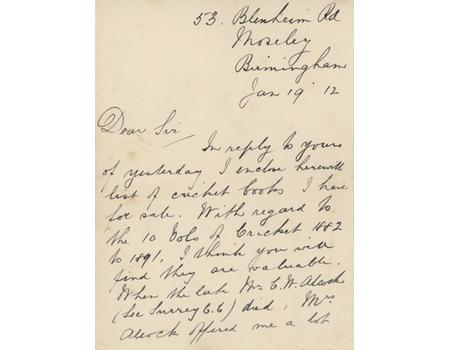 53. Blenheim Rd
Moseley
Birmingham
Jan 19 12
Dear Sir
In reply to yours
of yesterday I enclose herewith
list of cricket books I have
for sale. With regard to
the 10 Vols of Cricket 1882
to 1891, I think you will
find they are valuable.
When the late Mr C. W. Alcock
(Sec Surrey C.C) died, Mrs
Alcock offered me a lot